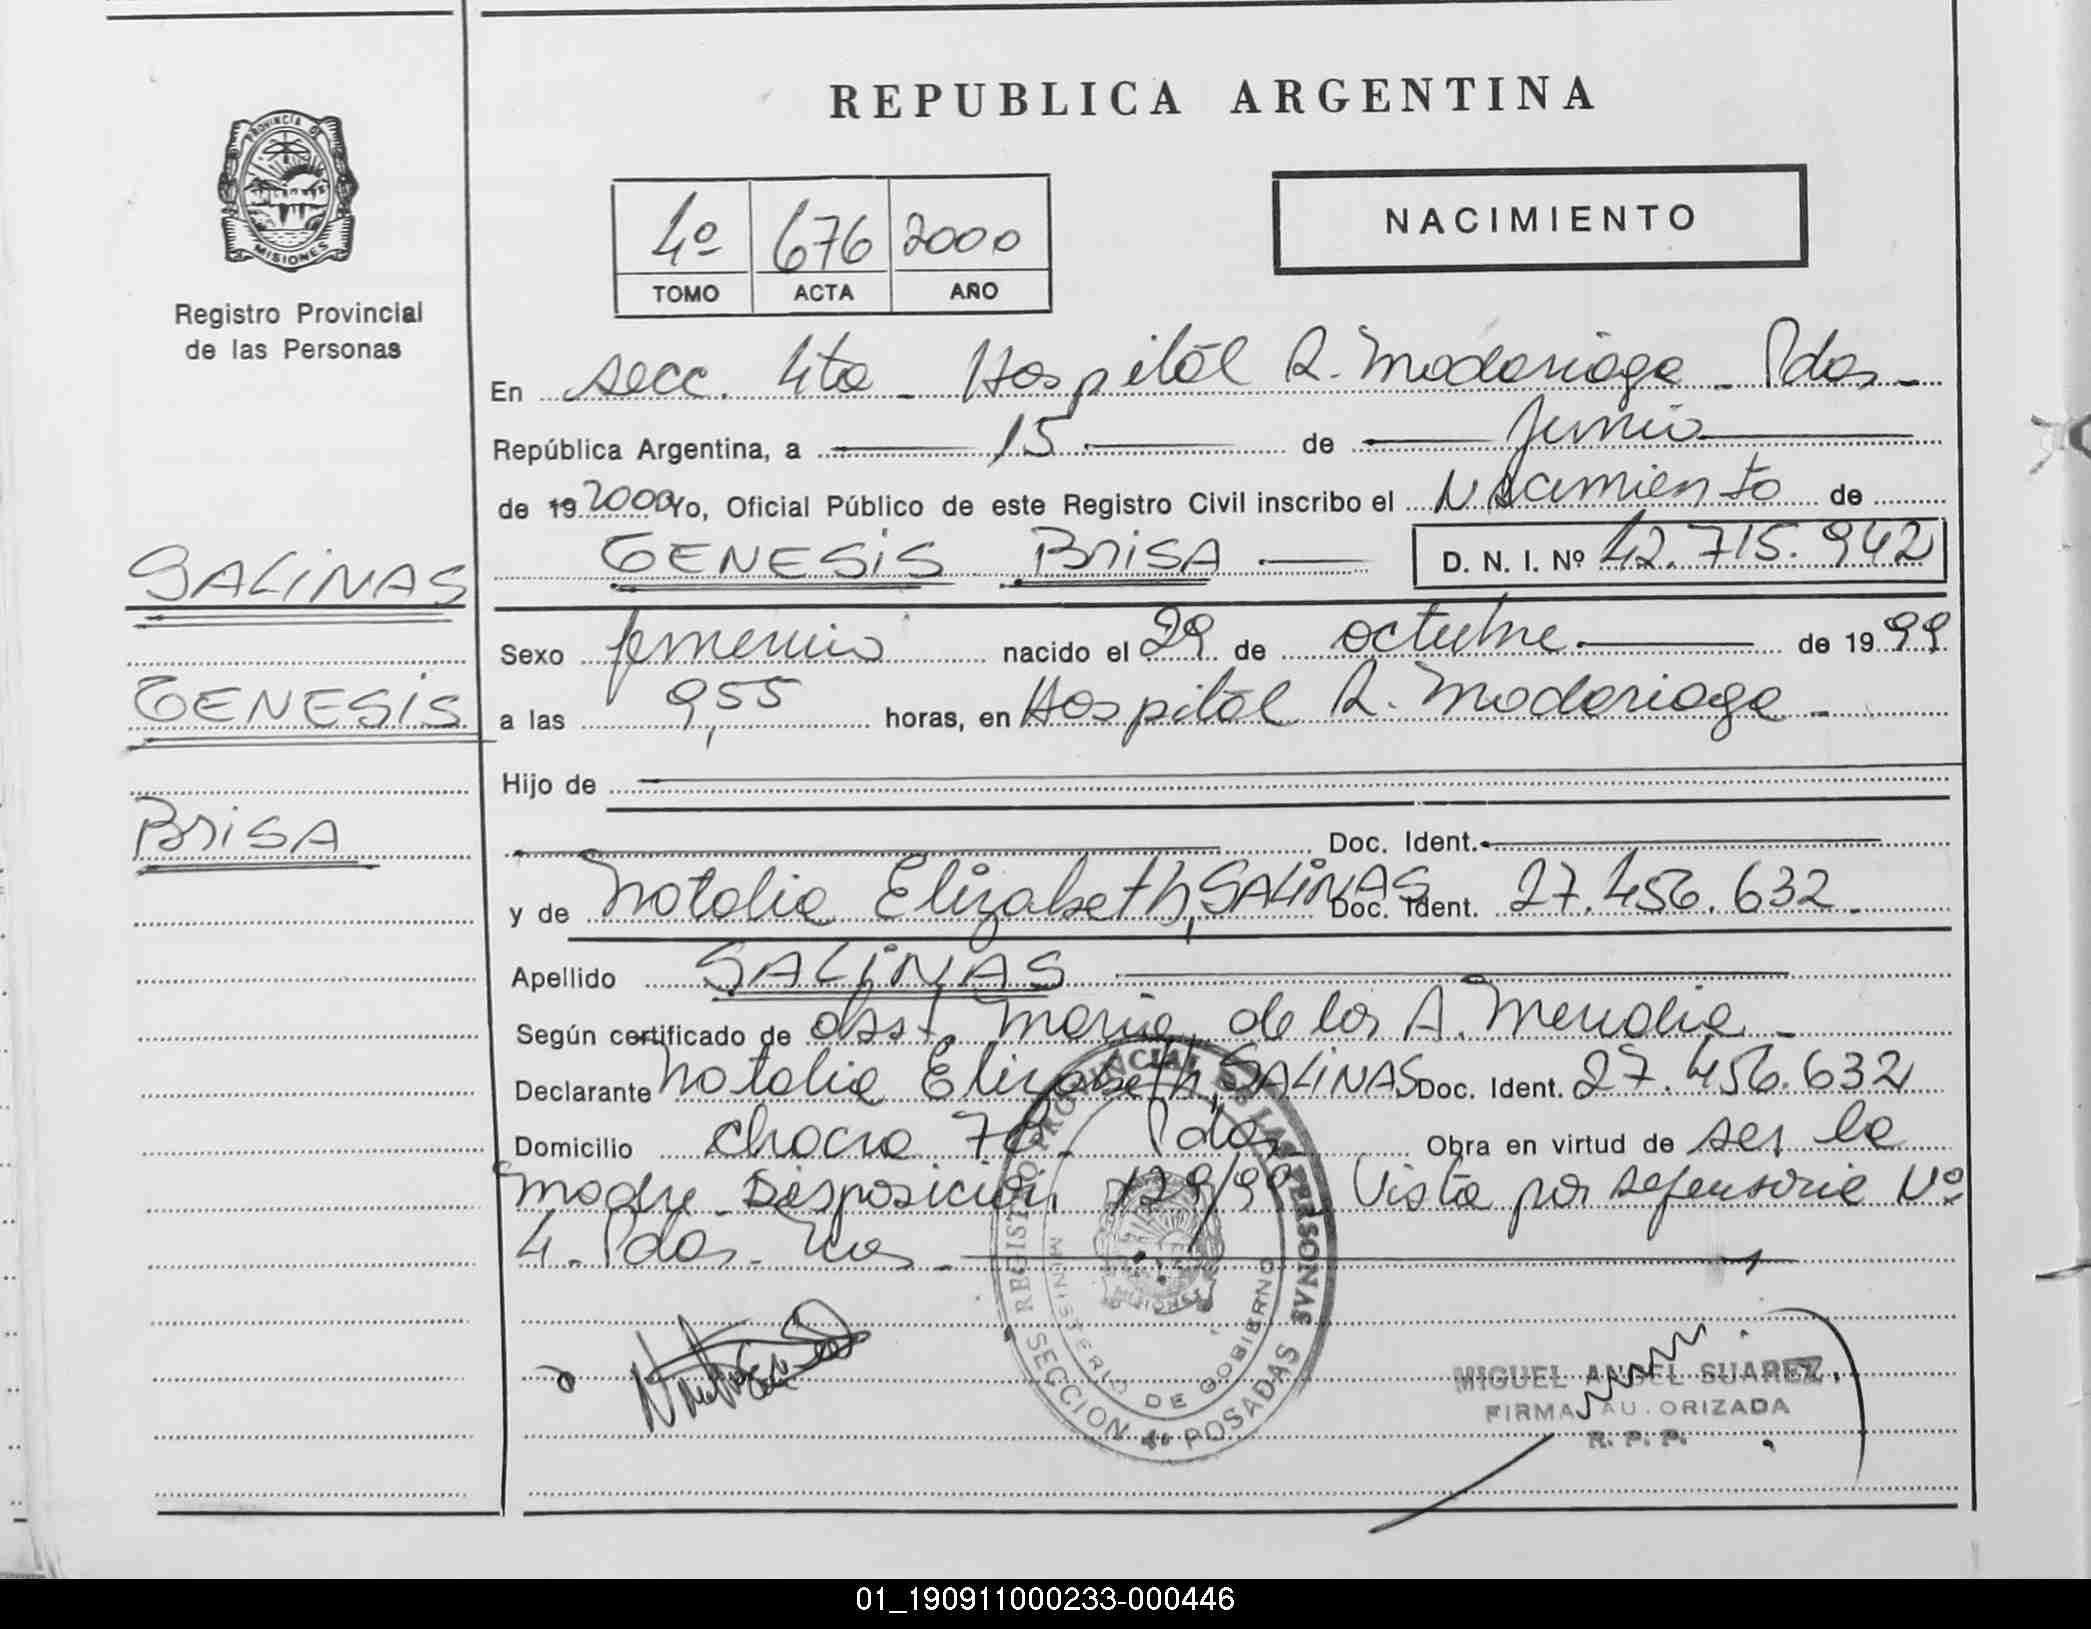 REPUBLICA ARGENTINA
PROVINCIA DE
MISIONES
Registro Provincial
de las Personas
4º 676 2000
TOMO ACTA AÑO
NACIMIENTO
En secc. 4ta - Hospital R. Madariaga - Pdas -
República Argentina, a 15 de Junio
de 19 2000 Yo, Oficial Público de este Registro Civil inscribo el Nacimiento de
GENESIS BRISA D. N. I. Nº 42.715.942
SALINAS
GENESIS
BRISA
Sexo femenino nacido el 29 de octubre de 19 99
a las 9,55 horas, en Hospital R. Madariaga -
Hijo de
Doc. Ident.
y de Natalia Elizabeth, SALINAS Doc. Ident. 27.456.632 -
Apellido SALINAS
Según certificado de obst. Maria de los A.
Declarante Natalia Elizabeth, SALINAS Doc. Ident. 27.456.632
Domicilio chacra 78 - Pdas - Obra en virtud de ser la
madre - Disposición 129/99 Vista por defensoria Nº
4 - Pdas - Mnes -
REGISTRO PROVINCIAL DE LAS PERSONAS
MINISTERIO DE GOBIERNO
SECCION 4a POSADAS
MIGUEL ANGEL SUAREZ
FIRMA AU ORIZADA
R. P. P.
01_190911000233-000446